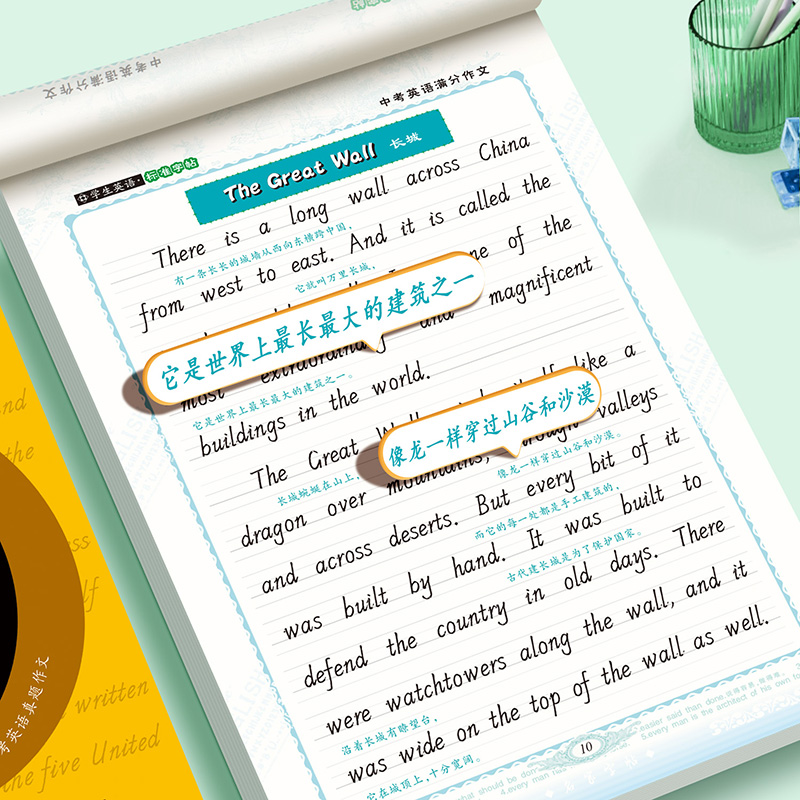 中考英语满分作文
中考英语满分作文
学生英语·标准字帖
The Great Wall 长城
There is a long wall across China
有一条长长的城墙从西向东横跨中国,
from west to east. And it is called the
它就叫万里长城,
one of the
它是世界上最长最大的建筑之一
most extraordinary and magnificent
它是世界上最长最大的建筑之一。
buildings in the world.
The Great Wall itself like a
长城蜿蜒在山上,
像龙一样穿过山谷和沙漠
dragon over mountains, through valleys
像龙一样穿过山谷和沙漠。
and across deserts. But every bit of it
而它的每一处都是手工建筑的,
was built by hand. It was built to
古代建长城是为了保护国家。
defend the country in old days. There
were watchtowers along the wall, and it
沿着长城有瞭望台,
was wide on the top of the wall as well.
它在城顶上,十分宽阔。
10
easier said than done.
5.every man is the architect of his own
what should be done
4.every man
and
the
ess
elf
written
the five United
考英语真题作文